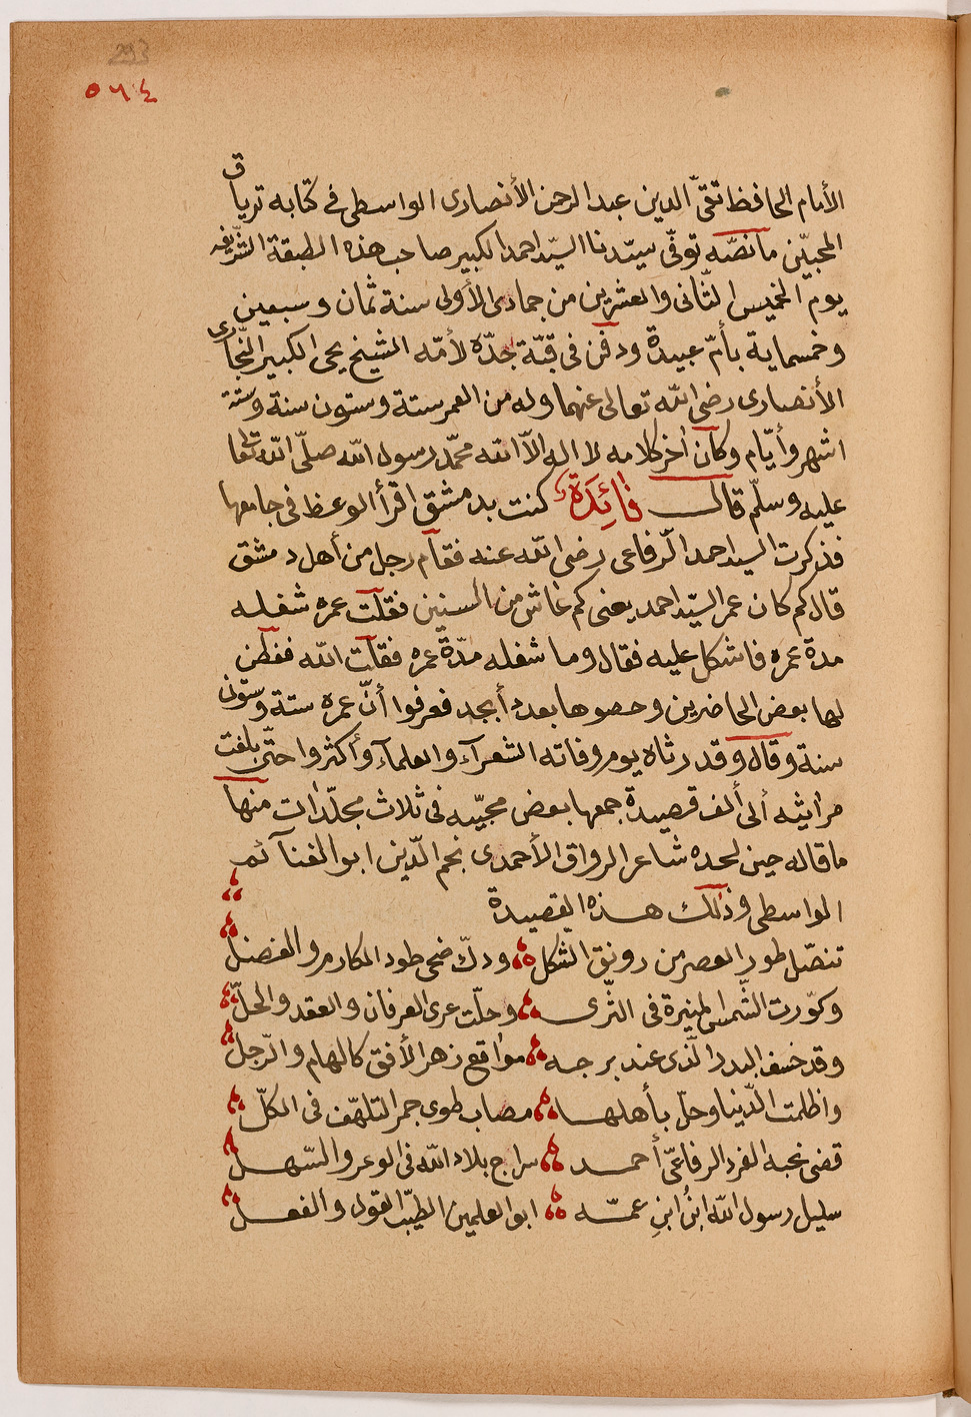 293
٥٦٤
الأمام الحافظ تقىّ الدين عبد الرحمن الأنصارى الواسطى فى كتابه ترياق
المحبيّن مانصّه توفّى سيّدنا السيّد احمد الكبير صاحب هذه الطبقة الشريفه
يوم الخميس الثّانى والعشرين من جمادى الأولى سنة ثمان وسبعين
وخمسماية بأمّ عبيدة ودفن فى قبّة جدّه لأمّه الشيخ يحى الكبير النجّارى
الأنصارى رضى الله تعالى عنهما وله من العمر ستة وستون سنة وستة
اشهر وأيّام وكان اخر كلامه لا اله الاّ الله محمّد رسول الله صلّى الله تعالى
عليه وسلّم قال فائِدَة كنت بدمشق اقرأ الوعظ فى جامعها
فذكرت السيد احمد الرّفاعى رضى الله عنه فقام رجل من أهل دمشق
قال كم كان عمر السيّد احمد يعنى كم عاش من السنين فقلت عمره شغله
مدة عمره فاشكل عليه فقال وما شغله مدّة عمره فقلت الله ففطن
لها بعض الحاضرين وحصوها بعدد أبجد فعرفوا أنّ عمره ستة وستون
سنة وقال وقد رثاه يوم وفاته الشعرآء والعلمآء وأكثروا حتّى بلغت
مراثيه ألى ألف قصيدة جمعها بعض محبّيه فى ثلاث مجلّدات منها
ماقاله حين لحده شاعر الرواق الأحمدى نجم الدّين ابوالغنآئم
الواسطى وذلك هذه القصيدة
تنصّل طور العصر من رونق الشكل ودكّ ضحى طود المكارم والفضل
وكوّرت الشّمس المنيرة فى الثّرى وحلّت عرى العرفان والعقد والحلّ
وقد خسف البدر الّذى عند برجه مواقع زهر الأفق كالهام والرّجل
واظلمت الدّنيا وحلّ بأهلها مصاب طوى جمر التلهّف فى الكلّ
قضى نحبه الفرد الرفاعىّ أحمد سراج بلاد الله فى الوعر والسّهل
سليل رسول الله ابنُ ابنِ عمّه ابوالعلمين الطيّب القول والفعل